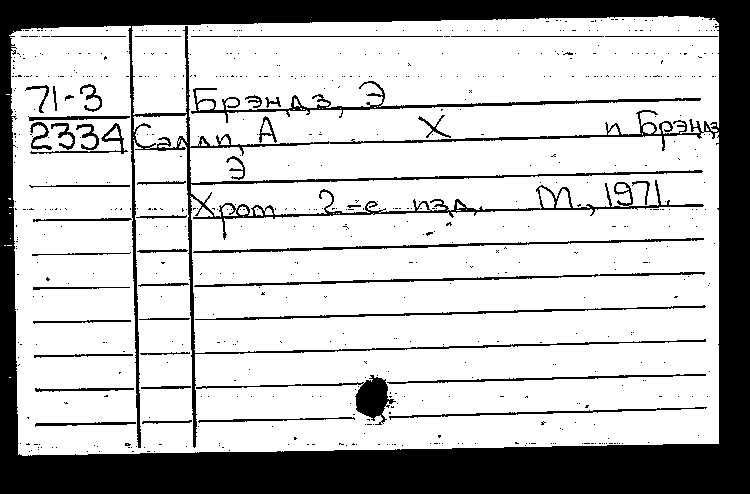 71-3 Брэндз, Э
2334 Салли, А Х и Брэндз
Э
Хром 2-е изд. М., 1971.